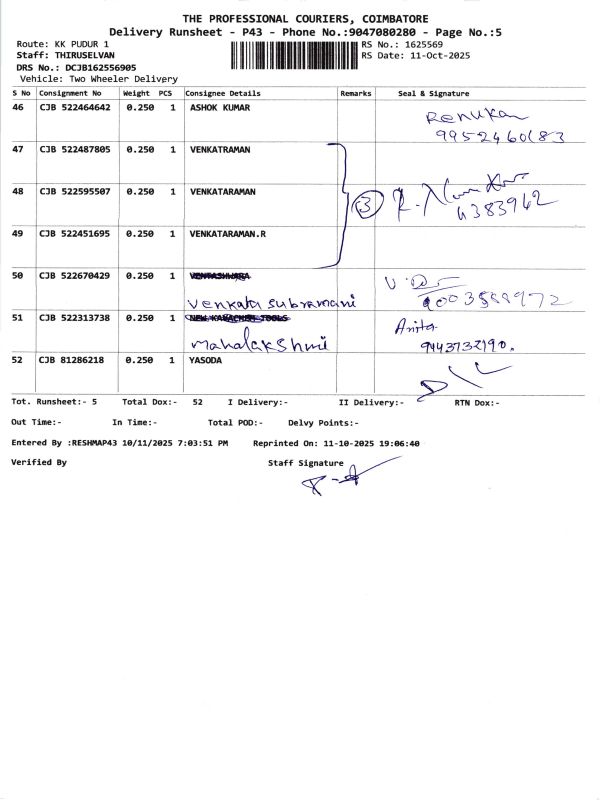 THE PROFESSIONAL COURIERS, COIMBATORE
Delivery Runsheet - P43 - Phone No.:9047080280 - Page No.:5
Route: KK PUDUR 1
RS No.: 1625569
Staff: THIRUSELVAN
RS Date: 11-Oct-2025
DRS No.: DCJB162556905
Vehicle: Two Wheeler Delivery
S No Consignment No Weight PCS Consignee Details Remarks Seal & Signature
46 CJB 522464642 0.250 1 ASHOK KUMAR
Renuka
9952460183
47 CJB 522487805 0.250 1 VENKATRAMAN
48 CJB 522595507 0.250 1 VENKATARAMAN
3
4383942
49 CJB 522451695 0.250 1 VENKATARAMAN.R
50 CJB 522670429 0.250 1
Venkata subramani
51 CJB 522313738 0.250 1 Anita
mahalakshmi 9443732190.
52 CJB 81286218 0.250 1 YASODA
Tot. Runsheet:- 5 Total Dox:- 52 I Delivery:- II Delivery:- RTN Dox:-
Out Time:- In Time:- Total POD:- Delvy Points:-
Entered By :RESHMAP43 10/11/2025 7:03:51 PM Reprinted On: 11-10-2025 19:06:40
Verified By Staff Signature